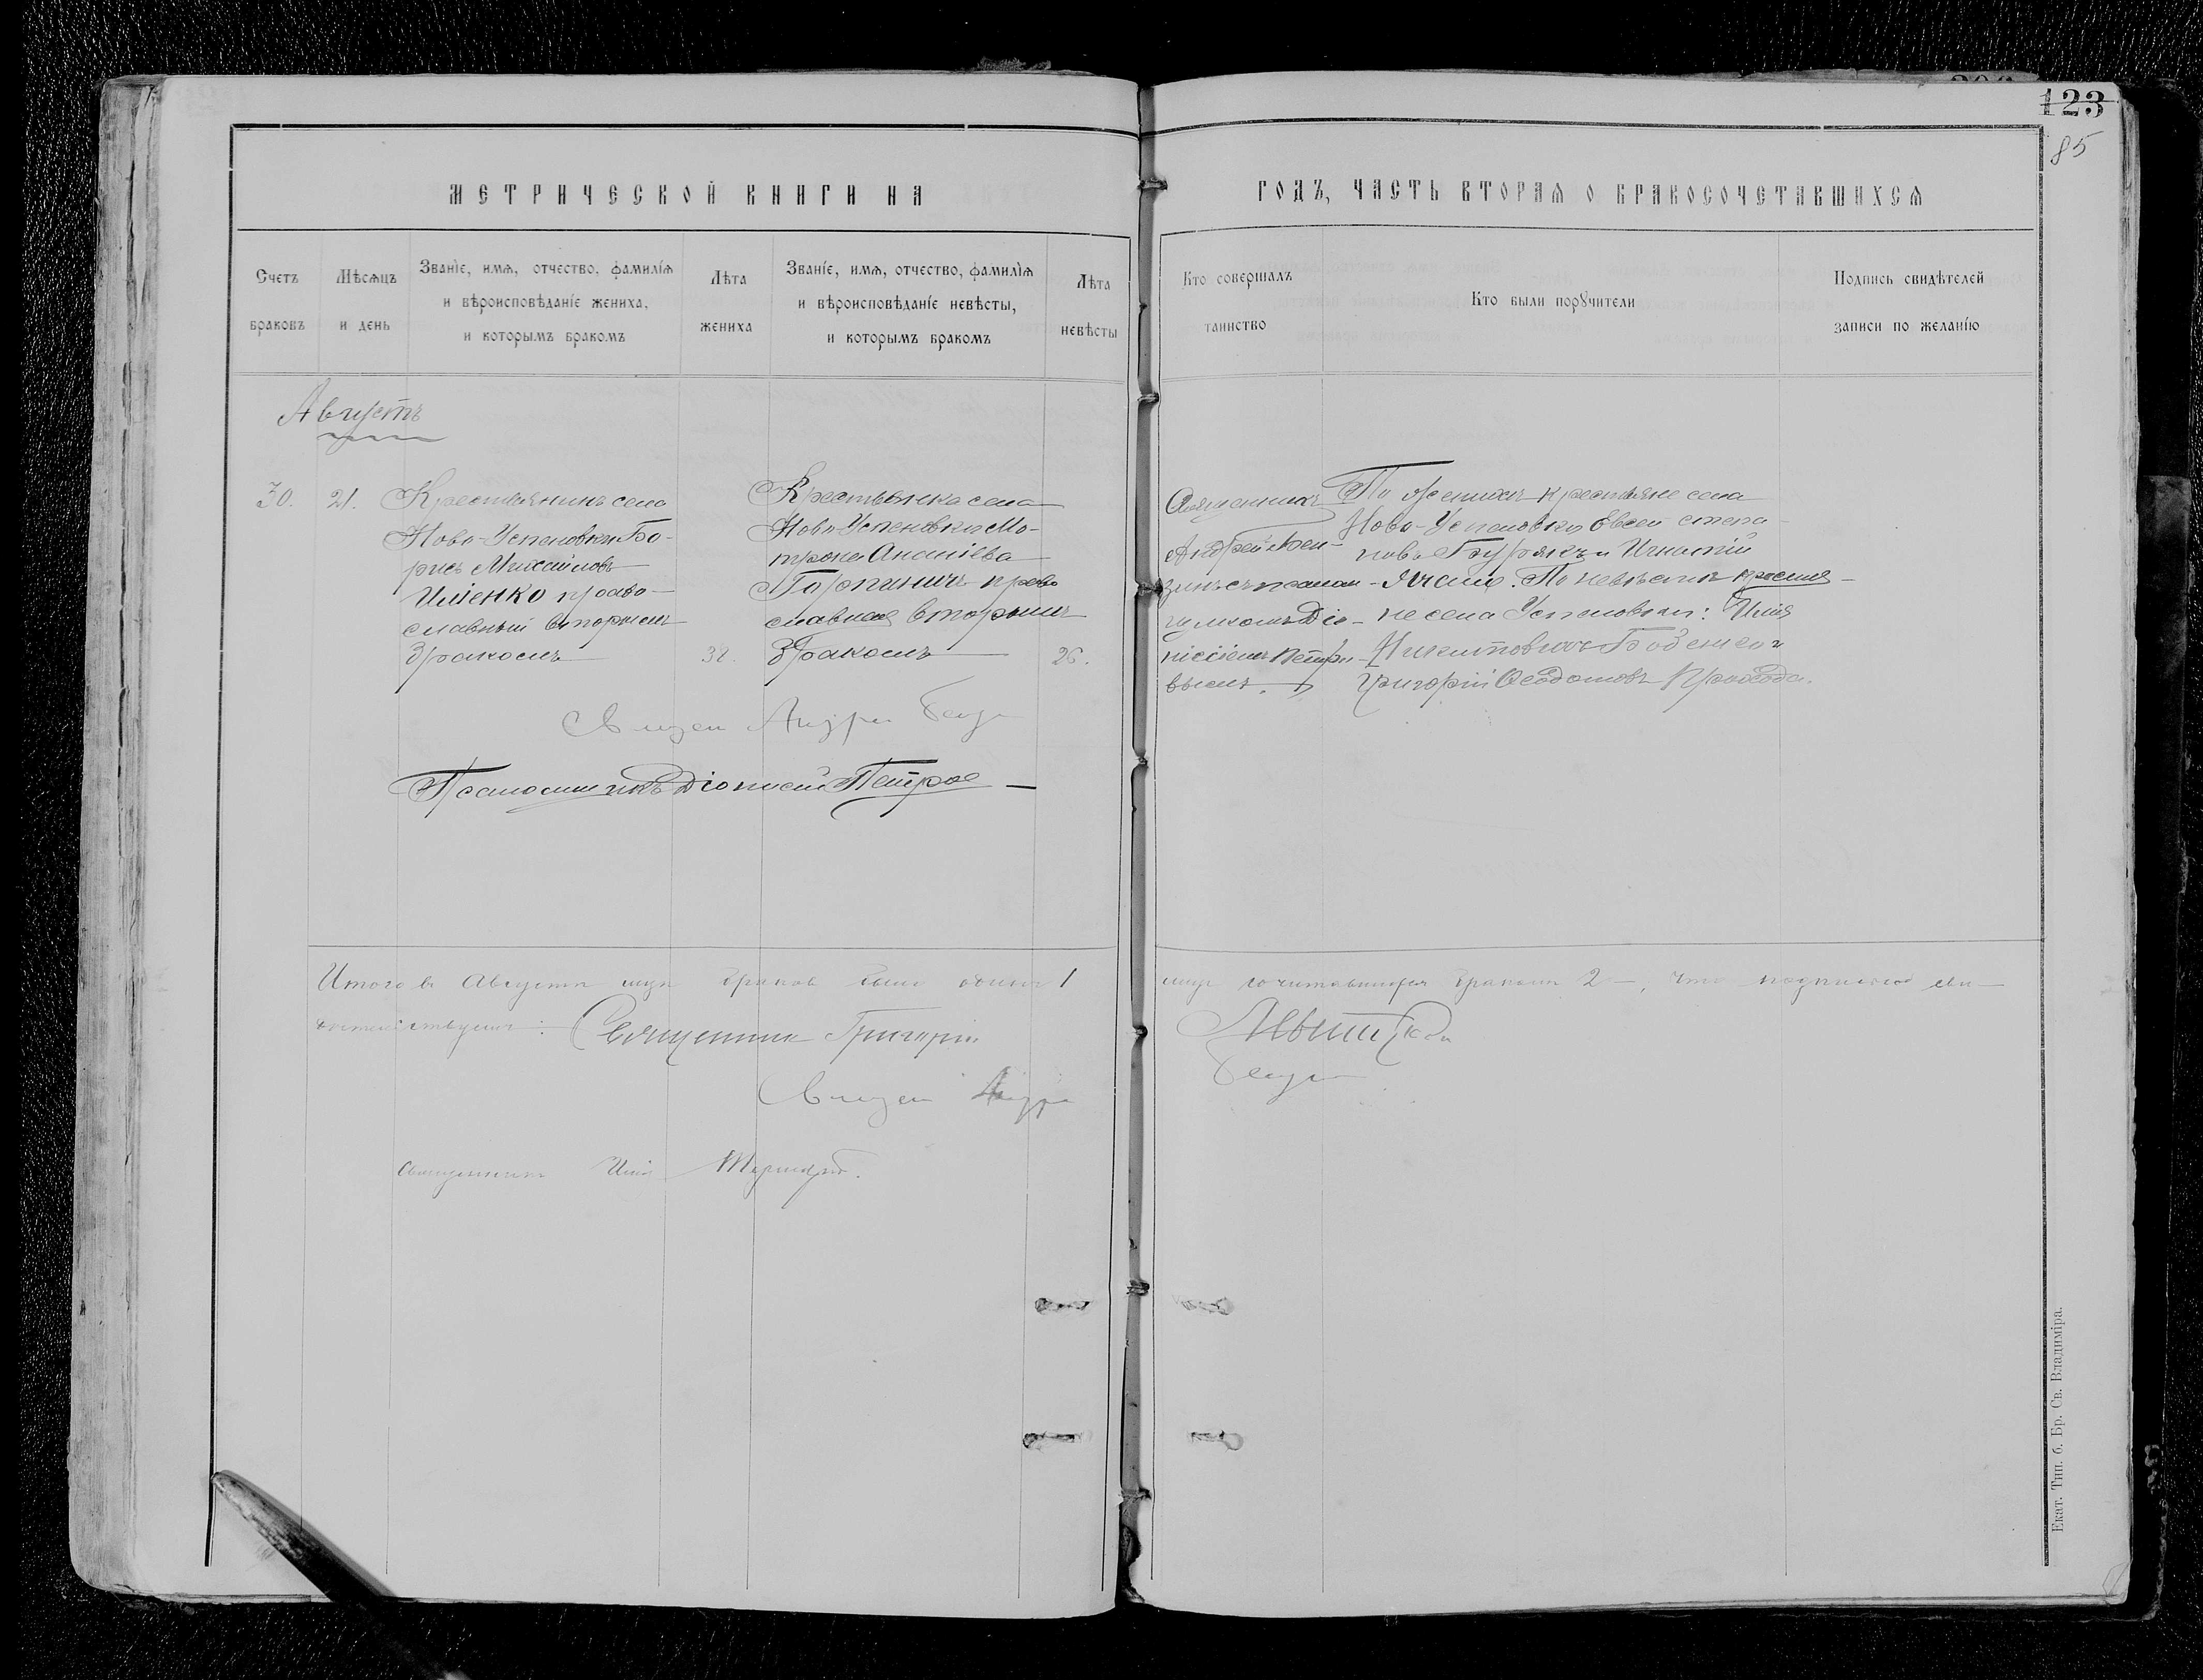 123
85
МЕТРИЧЕСКОЙ КНИГИ НА
ГОДЪ, ЧАСТЬ ВТОРАЯ О БРАКОСОЧЕТАВШИХСЯ
Счетъ браковъ
Мѣсяцъ и день
Званіе, имя, отчество, фамилія
и вѣроисповѣданіе жениха,
и которымъ бракомъ
Лѣта жениха
Званіе, имя, отчество, фамилія
и вѣроисповѣданіе невѣсты,
и которымъ бракомъ
Лѣта невѣсты
Кто совершалъ
таинство
Кто были поручители
Подпись свидѣтелей
записи по желанію
Августъ
30.
21.
Крестьянинъ села
Ново-Успеновки Бо-
рисъ Михайловъ
Иліенко право-
славный вторымъ
бракомъ
38.
Крестьянка села
Ново-Успеновки Мо-
трона Ананіева
православная вторымъ
бракомъ
26.
Священникъ
Андрей
псалом-
щикомъ Діо-
нисіемъ Петро-
вымъ.
По женихѣ крестьяне села
Ново-Успеновки Евсей Степа-
новъ и Игнатій
По невѣстѣ крестья-
не села Успеновки: Илія
Никитовичъ и
Григорій Феодотовъ
Священ Андрей
Псаломщикъ Діонисій Петров
Итого въ Августѣ мцѣ браковъ было одинъ 1
мцѣ сочитавшихся бракомъ 2 —, что подписью сви-
дѣтельствуемъ: Священникъ Григорій
Священ Андре
Священникъ Илія
Екат. Тип. б. Бр. Св. Владиміра.